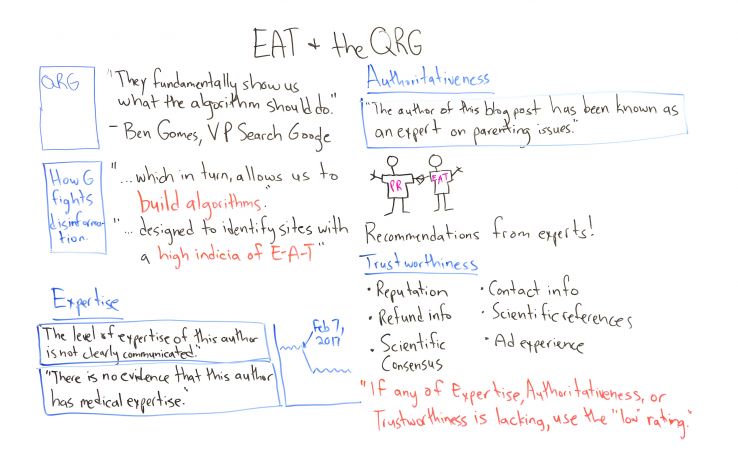 EAT + the QRG
QRG
"They fundamentally show us
what the algorithm should do."
- Ben Gomes, VP Search Google
How G
fights
disinforma-
tion.
"...which in turn, allows us to
build algorithms."
"... designed to identify sites with
a high indicia of E-A-T"
Expertise
"The level of expertise of this author
is not clearly communicated."
"There is no evidence that this author
has medical expertise."
Feb 7,
2017
Authoritativeness
"The author of this blog post has been known as
an expert on parenting issues."
PR
EAT
Recommendations from experts!
Trustworthiness
• Reputation
• Refund info
• Scientific
Consensus
• Contact info
• Scientific references
• Ad experience
"If any of Expertise, Authoritativeness, or
Trustworthiness is lacking, use the "low" rating."